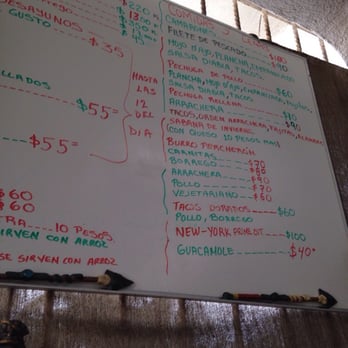 $220
1300
$350
DESAYUNOS
GUSTO
$45
$35
LLADOS
$55=
$55=
HASTA
LAS
12
DEL
DIA
$60
$60
TRA.....10 PESOS.
SIRVEN CON ARROZ
SE SIRVEN CON ARROZ
COMIDAS
CAMARONES
$100
FILETE DE PESCADO
MOJO D'AJO, PLANCHA, EMPANIZADO
SALSA DIABLA, TACOS
$90
PECHUGA DE POLLO
PLANCHA, MOJO D'AJO
SALSA DIABLA, TACOS
$60
PECHUGA RELLENA
ARRACHERA
$70
TACOS, ORDEN ARRACHERA
$90
SABANA DE INVIERNO
(CON QUESO 10 PESOS MAS)
BURRO PERCHERON
CARNITAS
BORREGO $70
ARRACHERA
POLLO $70
VEJETARIANO $60
TACOS DORADOS $60
POLLO, BORREGO
NEW-YORK $100
GUACAMOLE $40